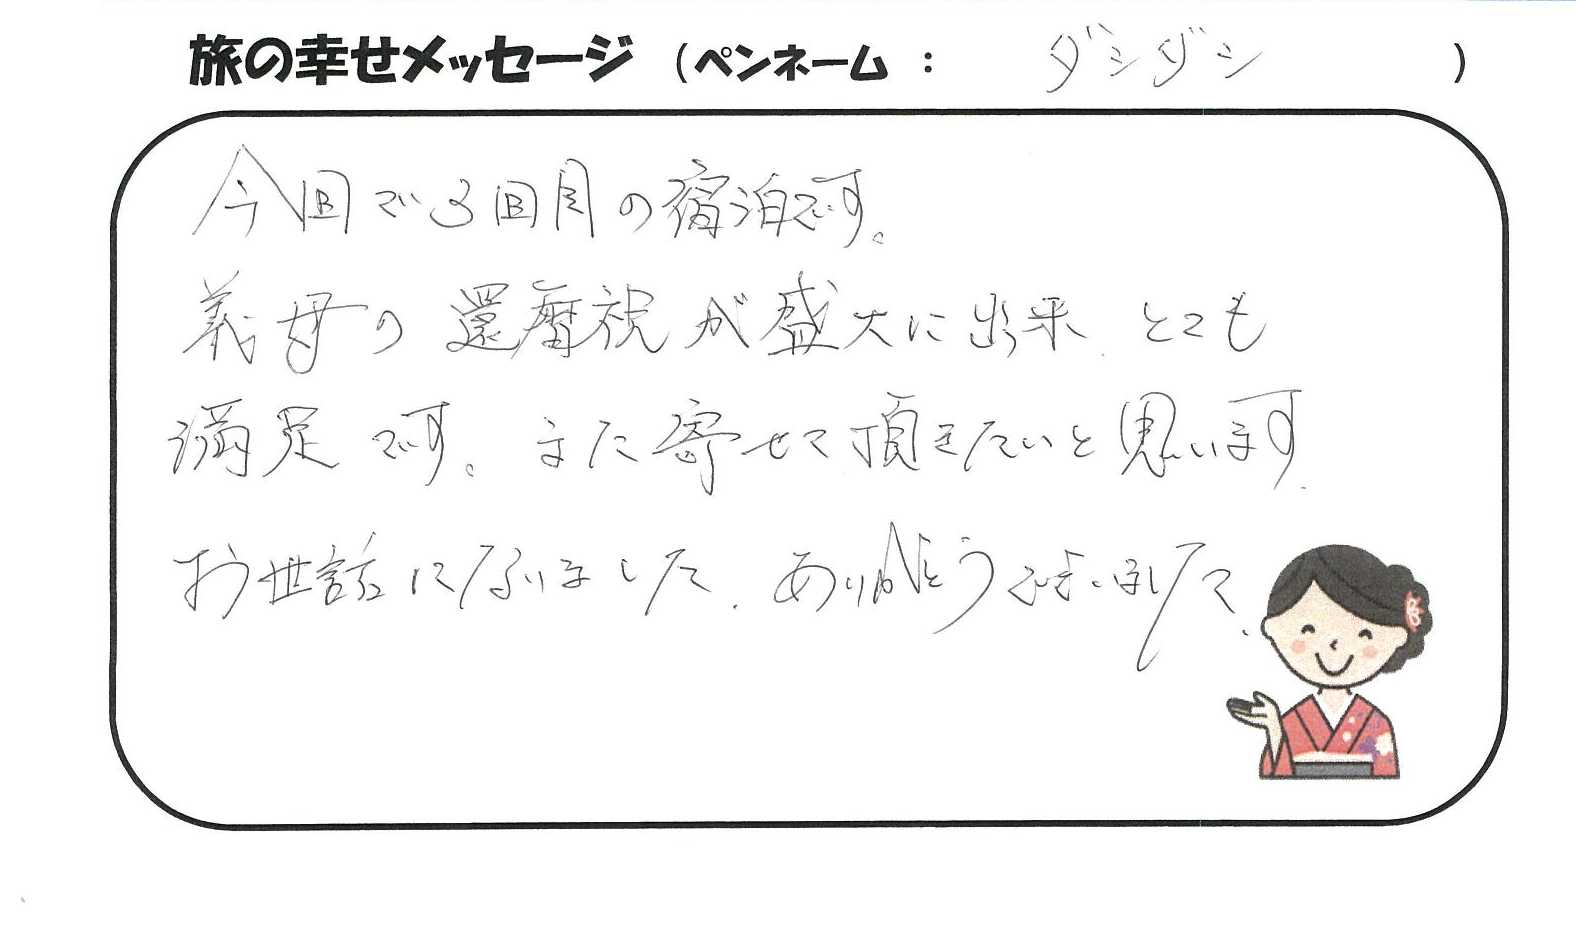 旅の幸せメッセージ（ペンネーム：ダンダン）
今回で3回目の宿泊です。
義母の還暦祝が盛大に出来、とても
満足です。また寄せて頂きたいと思います。
お世話になりました。ありがとうございました。